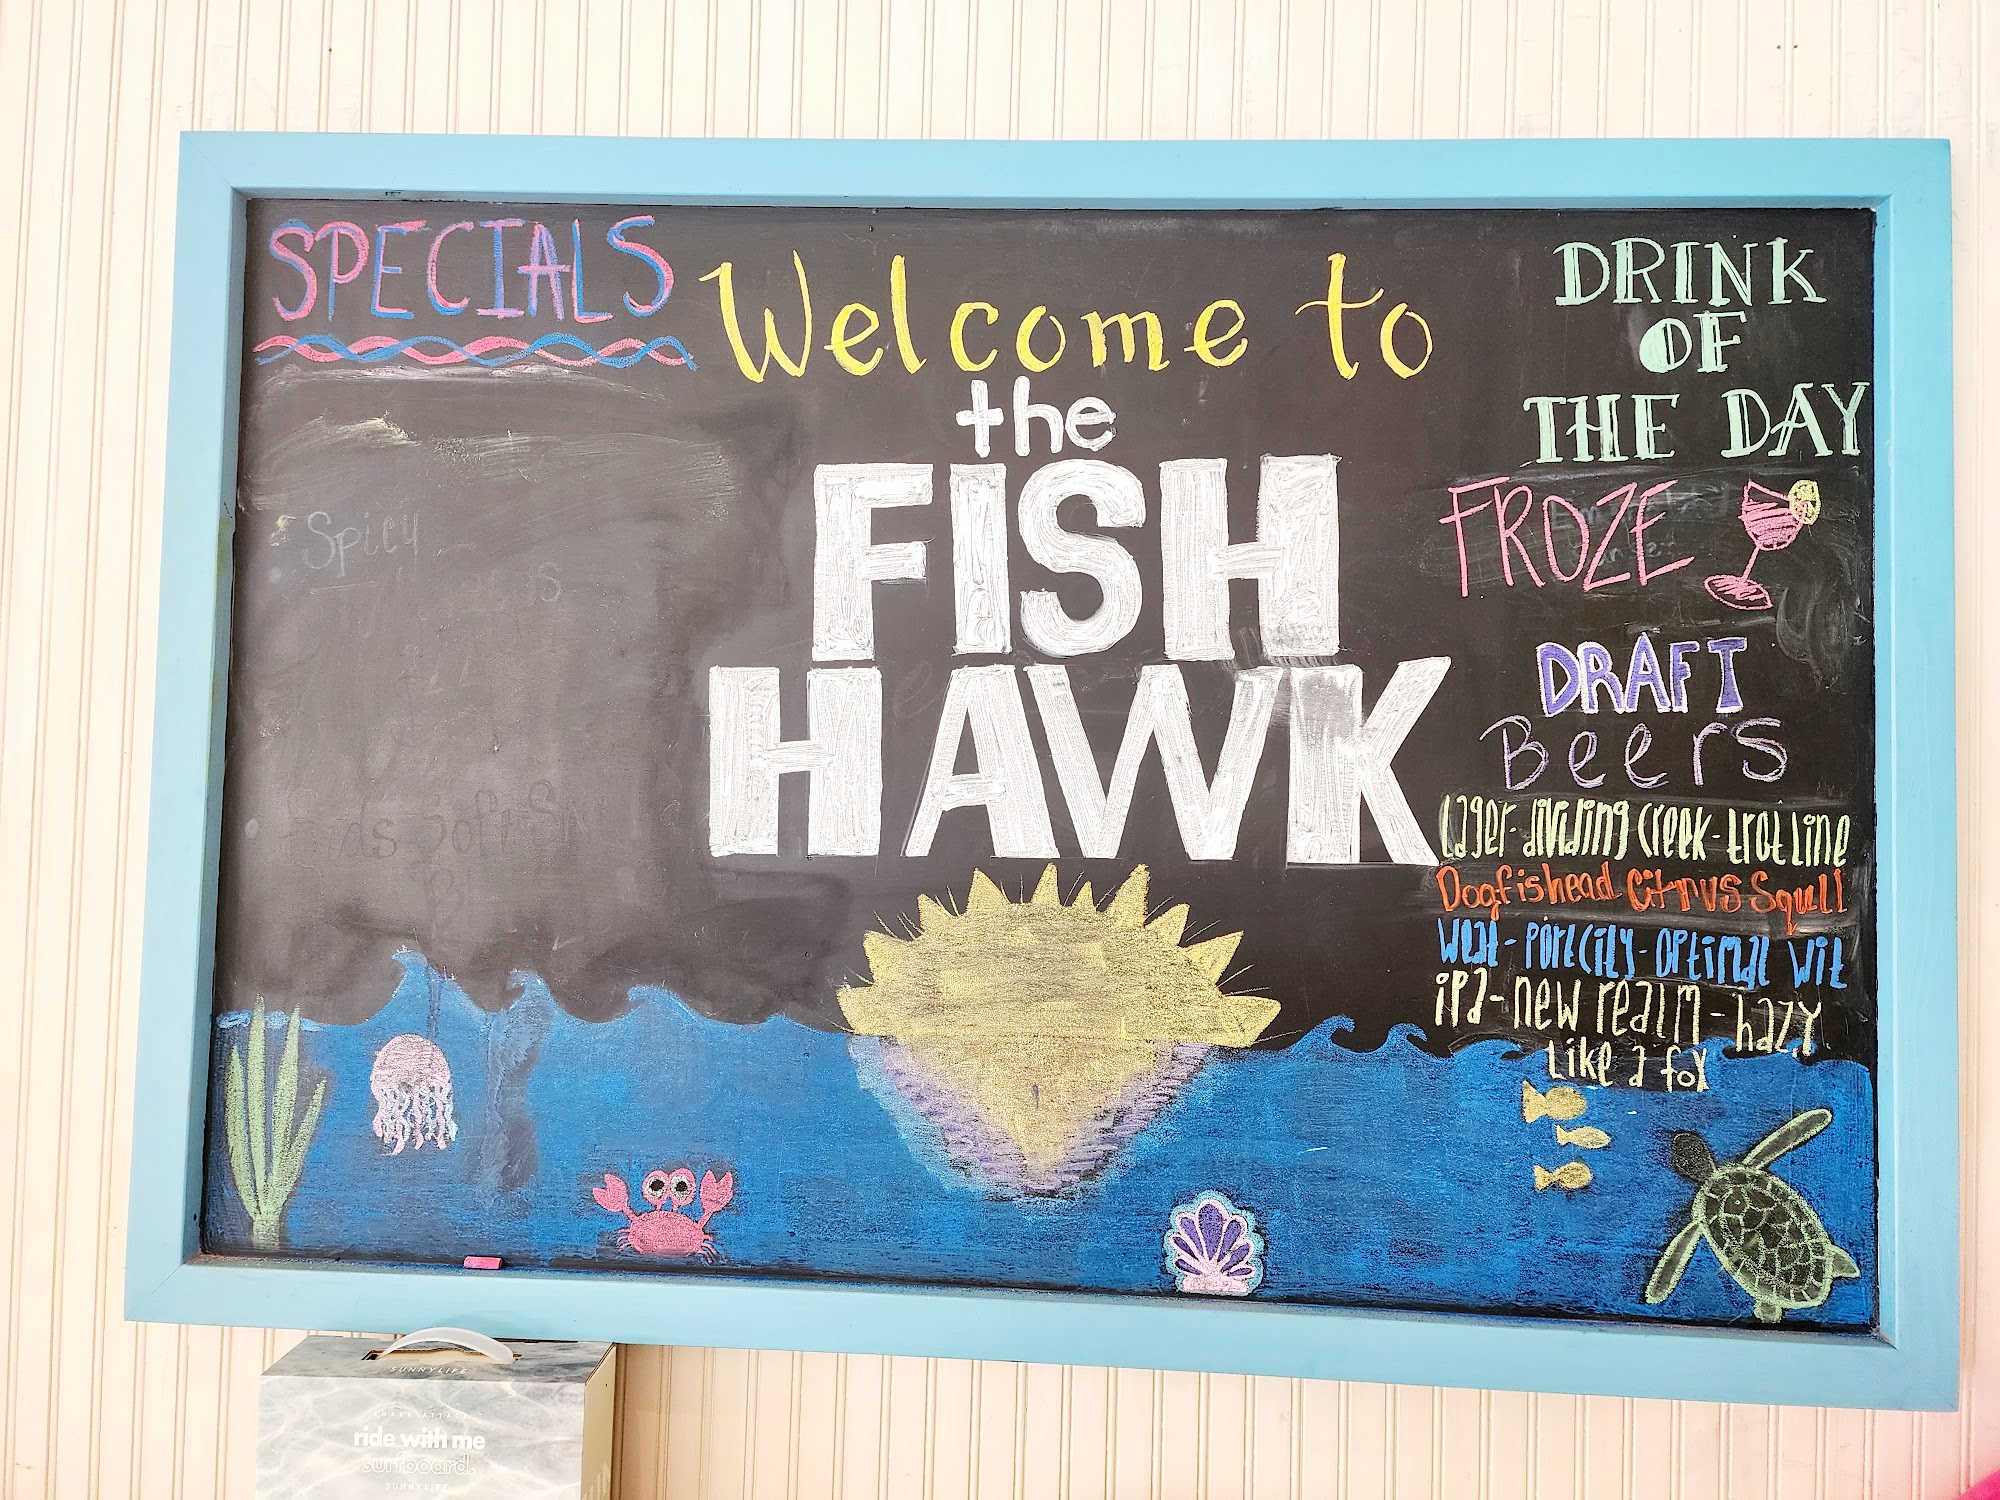 SPECIALS
Spicy
Welcome to
the
FISH
HAWK
DRINK
OF
THE DAY
FROZE
DRAFT
Beers
Lager-dividing Creek-trotline
Dogfishead Citrus Squll
Weat-Portcity-Optimal Wit
ipa-new realm-hazy
Like a fox
SUNNYLIFE
SHARK ATTACK
ride with me
surfboard.
SUNNYLIFE